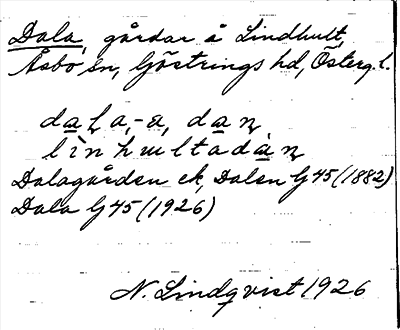 Dala, gårdar å Lindhult,
Åsbo sn, Göstrings hd, Österg. l.
dala, -a, dan
linhultadàn
Dalagården ek, Dalen G 45 (1882)
Dala G 45 (1926)
N. Lindqvist 1926